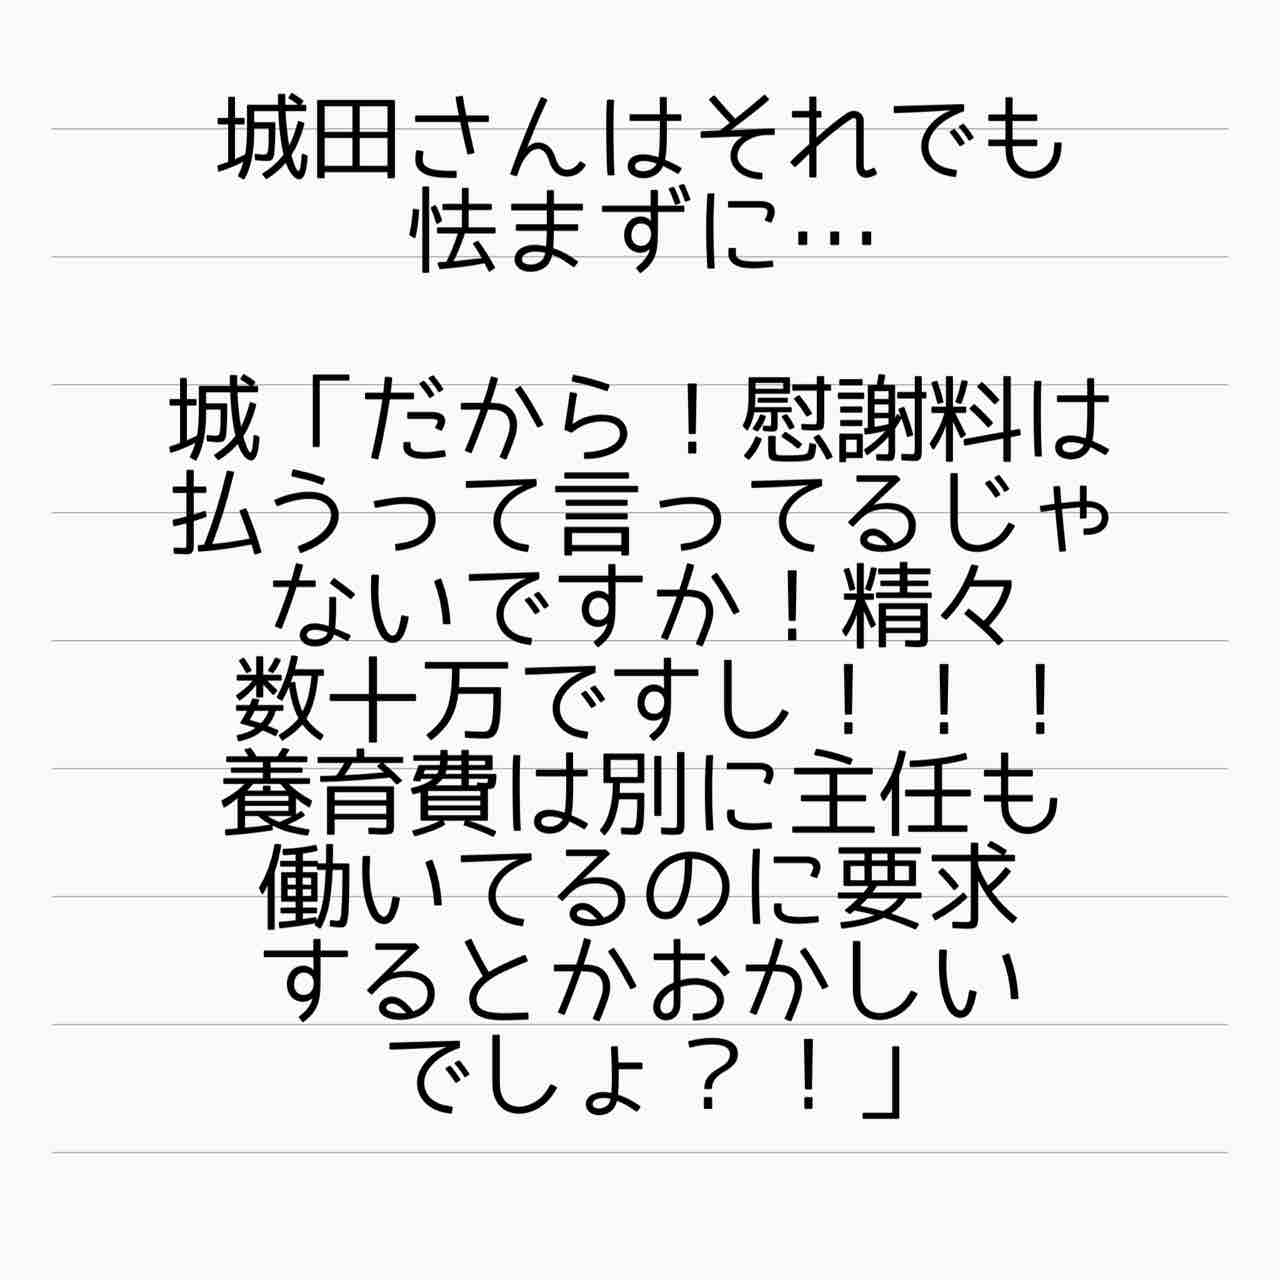 城田さんはそれでも
怯まずに…
城「だから！慰謝料は
払うって言ってるじゃ
ないですか！精々
数十万ですし！！！
養育費は別に主任も
働いてるのに要求
するとかおかしい
でしょ？！」